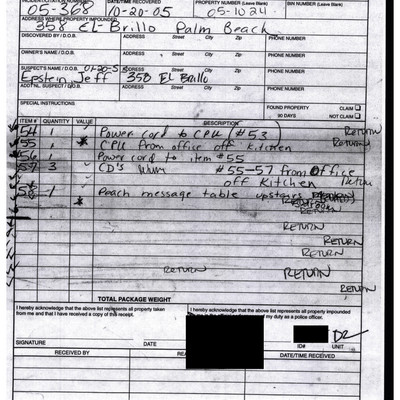 INCIDENT/CITATION NUMBER DATE/TIME RECOVERED PROPERTY (Leave Blank) BIN NUMBER (Leave Blank)
05-368 10-20-05 05-1024
ADDRESS WHERE PROPERTY IMPOUNDED
358 EL-Brillo Palm Beach
DISCOVERED BY / D.O.B. ADDRESS Street City Zip PHONE NUMBER
OWNER'S NAME / D.O.B. ADDRESS Street City Zip PHONE NUMBER
SUSPECT'S NAME / D.O.B. ADDRESS Street City Zip PHONE NUMBER
Epstein, Jeff 358 El Brillo
ADD'TNL. SUSPECT / D.O.B. ADDRESS Street City Zip PHONE NUMBER
SPECIAL INSTRUCTIONS FOUND PROPERTY CLAIM
90 DAYS NOT CLAIM
ITEM # QUANTITY VALUE DESCRIPTION
54 1 Power cord to CPU (#53) RETURN
55 1 CPU from office off kitchen RETURN
56 1 Power cord to item #55
57 3 CD's #55-57 from Office
off Kitchen Return
58 1 Peach message table upstairs
RETURN
RETURN
RETURN
RETURN
RETURN RETURN
RETURN
TOTAL PACKAGE WEIGHT
I hereby acknowledge that the above list represents all property taken
from me and that I have received a copy of this receipt.
I hereby acknowledge that the above list represents all property impounded
my duty as a police officer.
SIGNATURE DATE ID# UNIT
RECEIVED BY DATE/TIME RECEIVED